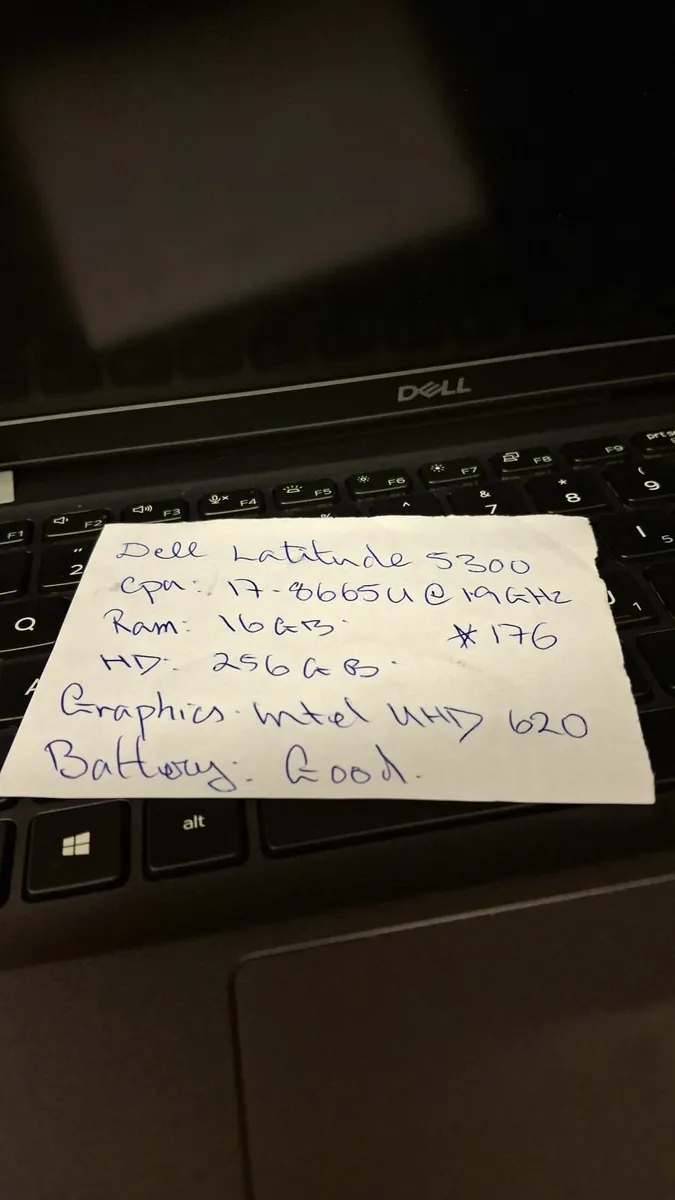 DELL
F1 F2 F3 F4 F5 F6 F7 F8 F9 prt s
" % ^ & * (
2 7 8 9
Dell Latitude 5300
Cpu: i7-8665U @ 1.9GHz
Ram: 16GB
*176
HD: 256GB
Graphics. Intel UHD 620
Battery: Good.
Q
A
I 5
J 1
alt